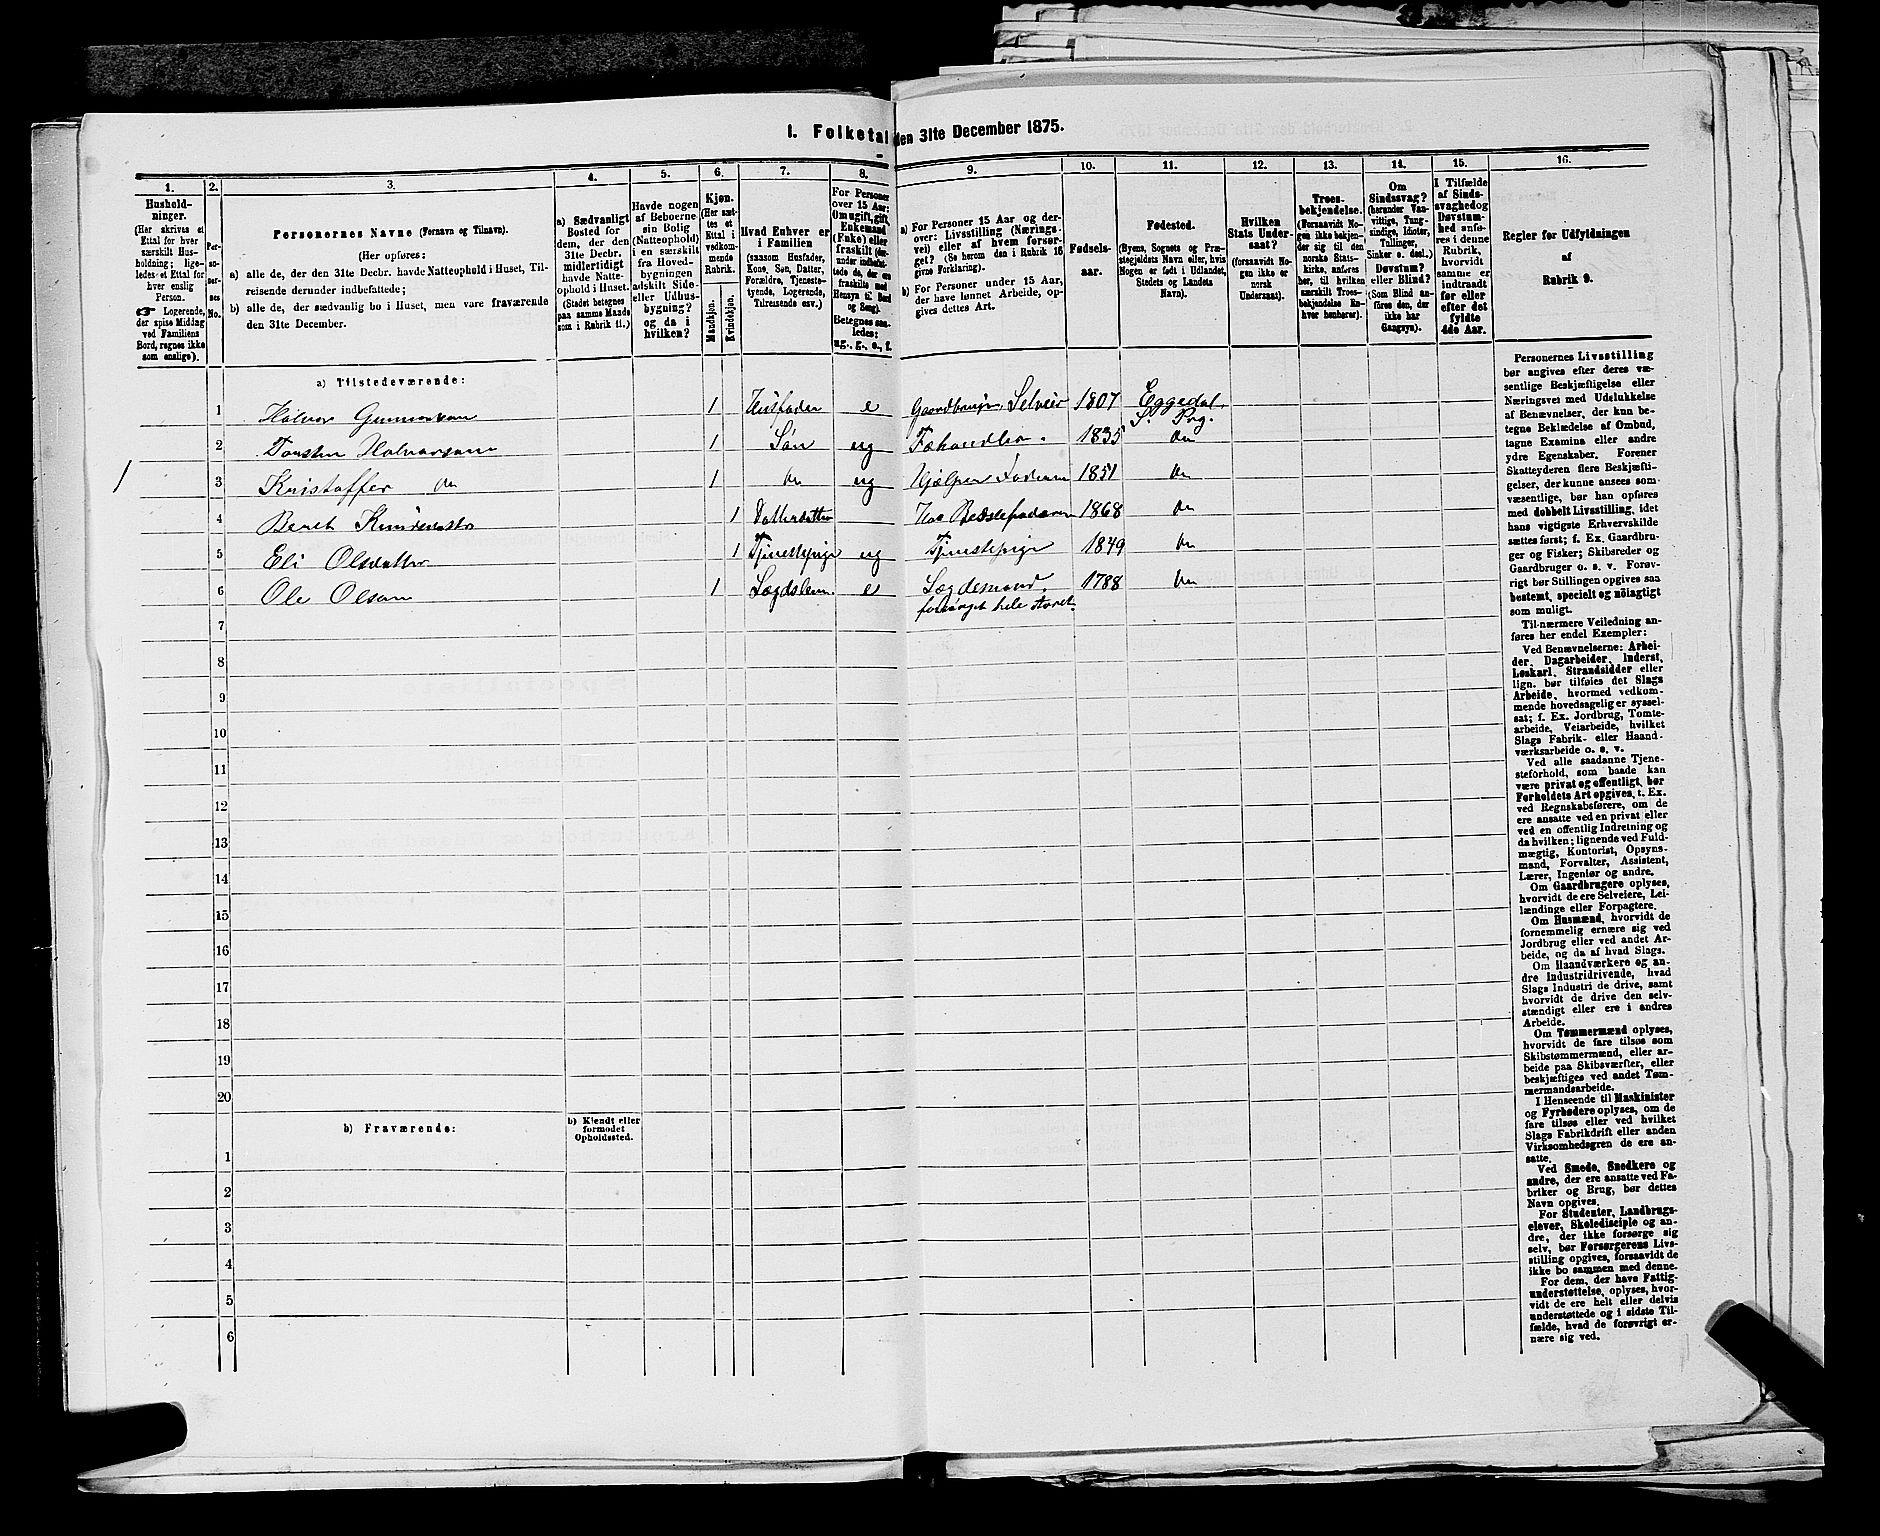 I. Folketal den 31te December 1875.
1. 2. 3. 4. 5. 6. 7. 8. 9. 10. 11. 12. 13. 14. 15. 16.
Husholdninger.
(Her skrives et
Ettal for hver
særskilt Husholdning; ligeledes et Ettal for
hver enslig
Person.
Logerende,
der spise Middag
ved Familiens
Bord, regnes ikke
som enslige).
Personernes No.
Personernes Navne (Fornavn og Tilnavn).
(Her opføres:
a) alle de, der den 31te Decbr. havde Natteophold i Huset, Tilreisende derunder indbefattede;
b) alle de, der sædvanlig bo i Huset, men vare fraværende
den 31te December.
a) Sædvanligt
Bosted for
dem, der den
31te Decbr.
midlertidigt
havde Natteophold i Huset.
(Stedet betegnes
paa samme Maade
som i Rubrik 11.)
Havde nogen
af Beboerne
sin Bolig
(Natteophold)
i en særskilt
fra Hovedbygningen
adskilt Side-
eller Udhusbygning?
og da i
hvilken?
Kjøn.
(Her sættes et
Ettal i
vedkommende
Rubrik.
Mandkjøn.
Kvindekjøn.
Hvad Enhver er
i Familien
(saasom Husfader,
Kone, Søn, Datter,
Forældre, Tjenestetyende, Logerende,
Tilreisende osv.)
For Personer
over 15 Aar:
Om ugift, gift,
Enkemand
(Enke) eller
fraskilt (derunder indbefattede de, der ere
fraskilte med
Hensyn til Bord
og Seng).
Betegnes saaledes:
ug., g., e., f.
a) For Personer 15 Aar og derover: Livsstilling (Næringsvei) eller af hvem forsørget? (Se herom den i Rubrik 16
givne Forklaring).
b) For Personer under 15 Aar,
der have lønnet Arbeide, opgives dettes Art.
Fødselsaar.
Fødested.
(Byens, Sognets og Præstegjeldets Navn eller, hvis
Nogen er født i Udlandet,
Stedets og Landets
Navn).
Hvilken
Stats Undersaat?
(forsaavidt Nogen ikke er
norsk
Undersaat).
Troesbekjendelse.
(Forsaavidt Nogen ikke bekjender sig til den
norske Statskirke, anføres
her, til hvilken
særskilt Troesbekjendelse Enhver henhører).
Om
Sindssvag?
(herunder Vanvittige, Tungsindige, Idioter,
Tullinger,
Sinker o. desl.)
Døvstum?
eller Blind?
(Som Blind anføres den, der
ikke har
Gangsyn).
I Tilfælde
af Sindssvaghed og
Døvstumhed anføres i denne
Rubrik,
hvorvidt
samme er
indtraadt
før eller
efter det
fyldte
4de Aar.
Regler for Udfyldningen
af
Rubrik 9.
a) Tilstedeværende:
1 Halvor Gunnersen 1 Husfader e Gaardbruger, Selveier 1807 Eggedal S. Prg.
2 Torsten Halvorsen 1 Søn ug Fæhandler. 1835 do
1 3 Kristoffer do 1 do ug Hjælper Faderen 1851 do
4 Knudsdatter 1 Datterdatter Hos Bedstefaderen 1868 do
5 Eli Olsdatter 1 Tjenestepige ug Tjenestepige 1849 do
6 Ole Olsen 1 Lægdslem. e Lægdsmand. 1788 do
forsørget hele Aaret.
7
8
9
10
11
12
13
14
15
16
17
18
19
20
b) Fraværende:
b) Kjendt eller
formodet
Opholdssted.
1
2
3
4
5
6
Personernes Livsstilling
bør angives efter deres væsentlige Beskjæftigelse eller
Næringsvei med Udelukkelse
af Benævnelser, der kun betegne Beklædelse af Ombud,
tagne Examina eller andre
ydre Egenskaber. Forener
Skatteyderen flere Beskjæftigelser, der kunne ansees som
væsentlige, bør han opføres
med dobbelt Livsstilling, idet
hans vigtigste Erhvervskilde
sættes først; f. Ex. Gaardbruger og Fisker; Skibsreder og
Gaardbruger o. s. v. Forøvrigt bør Stillingen opgives saa
bestemt, specielt og nøiagtigt
som muligt.
Til nærmere Veiledning anføres her endel Exempler:
Ved Benævnelserne: Arbeider, Dagarbeider, Inderst,
Løskarl, Strandsidder eller
lign. bør tilføies det Slags
Arbeide, hvormed vedkommende hovedsagelig er sysselsat; f. Ex. Jordbrug, Tomtearbeide, Veiarbeide, hvilket
Slags Fabrik- eller Haandværksarbeide o. s. v.
Ved alle saadanne Tjenesteforhold, som baade kan
være privat og offentligt, bør
Forholdets Art opgives, t. Ex.
ved Regnskabsførere, om de
ere ansatte ved en privat eller
ved en offentlig Indretning og
da hvilken; lignende ved Fuldmægtig, Kontorist, Opsynsmand, Forvalter, Assistent,
Lærer, Ingeniør og andre.
Om Gaardbrugere oplyses,
hvorvidt de ere Selveiere, Leilændinge eller Forpagtere.
Om Husmænd, hvorvidt de
fornemmelig ernære sig ved
Jordbrug eller ved andet Arbeide, og da af hvad Slags.
Om Haandværkere og andre Industridrivende, hvad
Slags Industri de drive, samt
hvorvidt de drive den selvstændigt eller ere i andres
Arbeide.
Om Tømmermænd oplyses,
hvorvidt de fare tilsøs som
Skibstømmermænd, eller arbeide paa Skibsværfter, eller
beskjæftiges ved andet Tømmermandsarbeide.
I Henseende til Maskinister
og Fyrbødere oplyses, om de
fare tilsøs eller ved hvilket
Slags Fabrikdrift eller anden
Virksomhedsgren de ere ansatte.
Ved Smede, Snedkere og
andre, der ere ansatte ved Fabriker og Brug, bør dettes
Navn opgives.
For Studenter, Landbrugselever, Skoledisciple og andre, der ikke forsørge sig
selv, bør Forsørgerens Livsstilling opgives, forsaavidt de
ikke bo sammen med denne.
For dem, der have Fattigunderstøttelse, oplyses, hvorvidt de ere helt eller delvis
understøttede og i sidste Tilfælde, hvad de forøvrigt ernære sig ved.